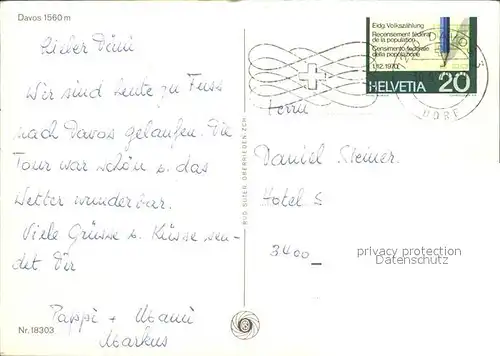 Davos 1560 m
Lieber Däni
Wir sind heute zu Fuss
nach Davos gelaufen. Die
Tour war schön u. das
Wetter wunderbar.
Viele Grüsse u. Küsse sen-
det Dir
Pappi + Mami
Markus
Nr. 18303
RUD. SUTER, OBERRIEDEN-ZCH.
Eidg. Volkszählung
Recensement fédéral
de la population
Censimento federale
della popolazione
1.12.1970
HELVETIA 20
DAVOS
DORF
Herrn
Daniel Steiner
Hotel S
3400
privacy protection
Datenschutz